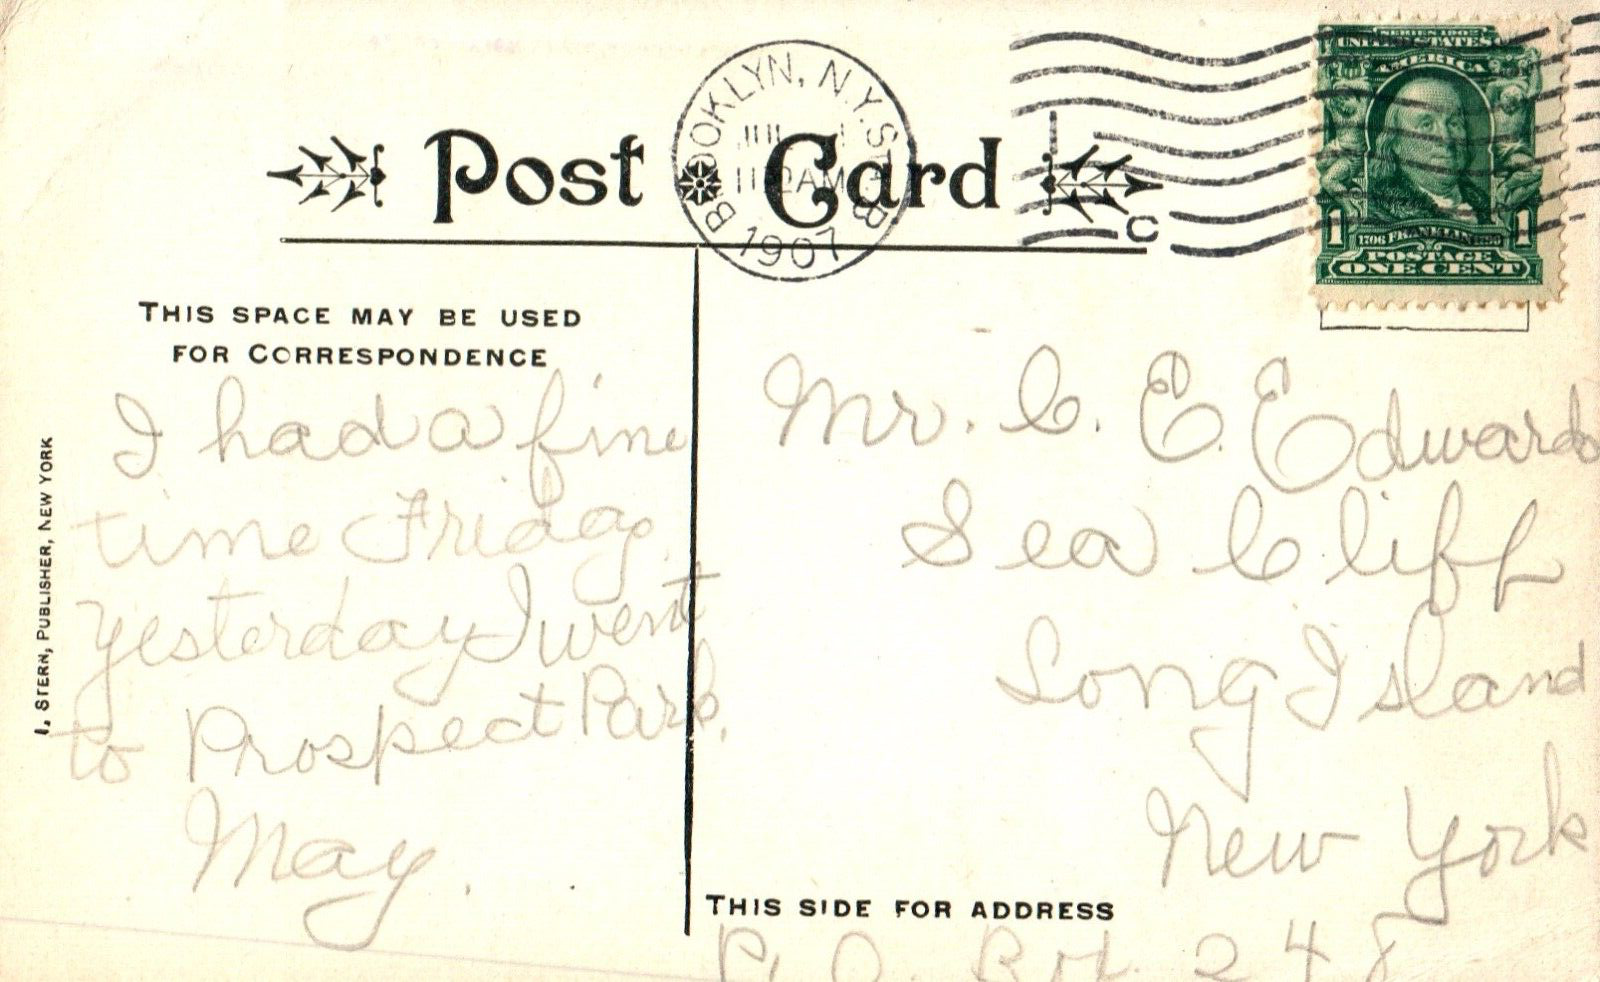 Post Card
BROOKLYN, N.Y. STA. B
11 AM
1907
C
SERIES 1902
UNITED STATES
AMERICA
1 1
1706 FRANKLIN 1790
POSTAGE
ONE CENT
THIS SPACE MAY BE USED
FOR CORRESPONDENCE
I had a fine
time Friday.
Yesterday I went
to Prospect Park.
May.
Mr. C. E. Edwards
Sea Cliff
Long Island
New York
THIS SIDE FOR ADDRESS
P. O. Box 248
I. STERN, PUBLISHER, NEW YORK